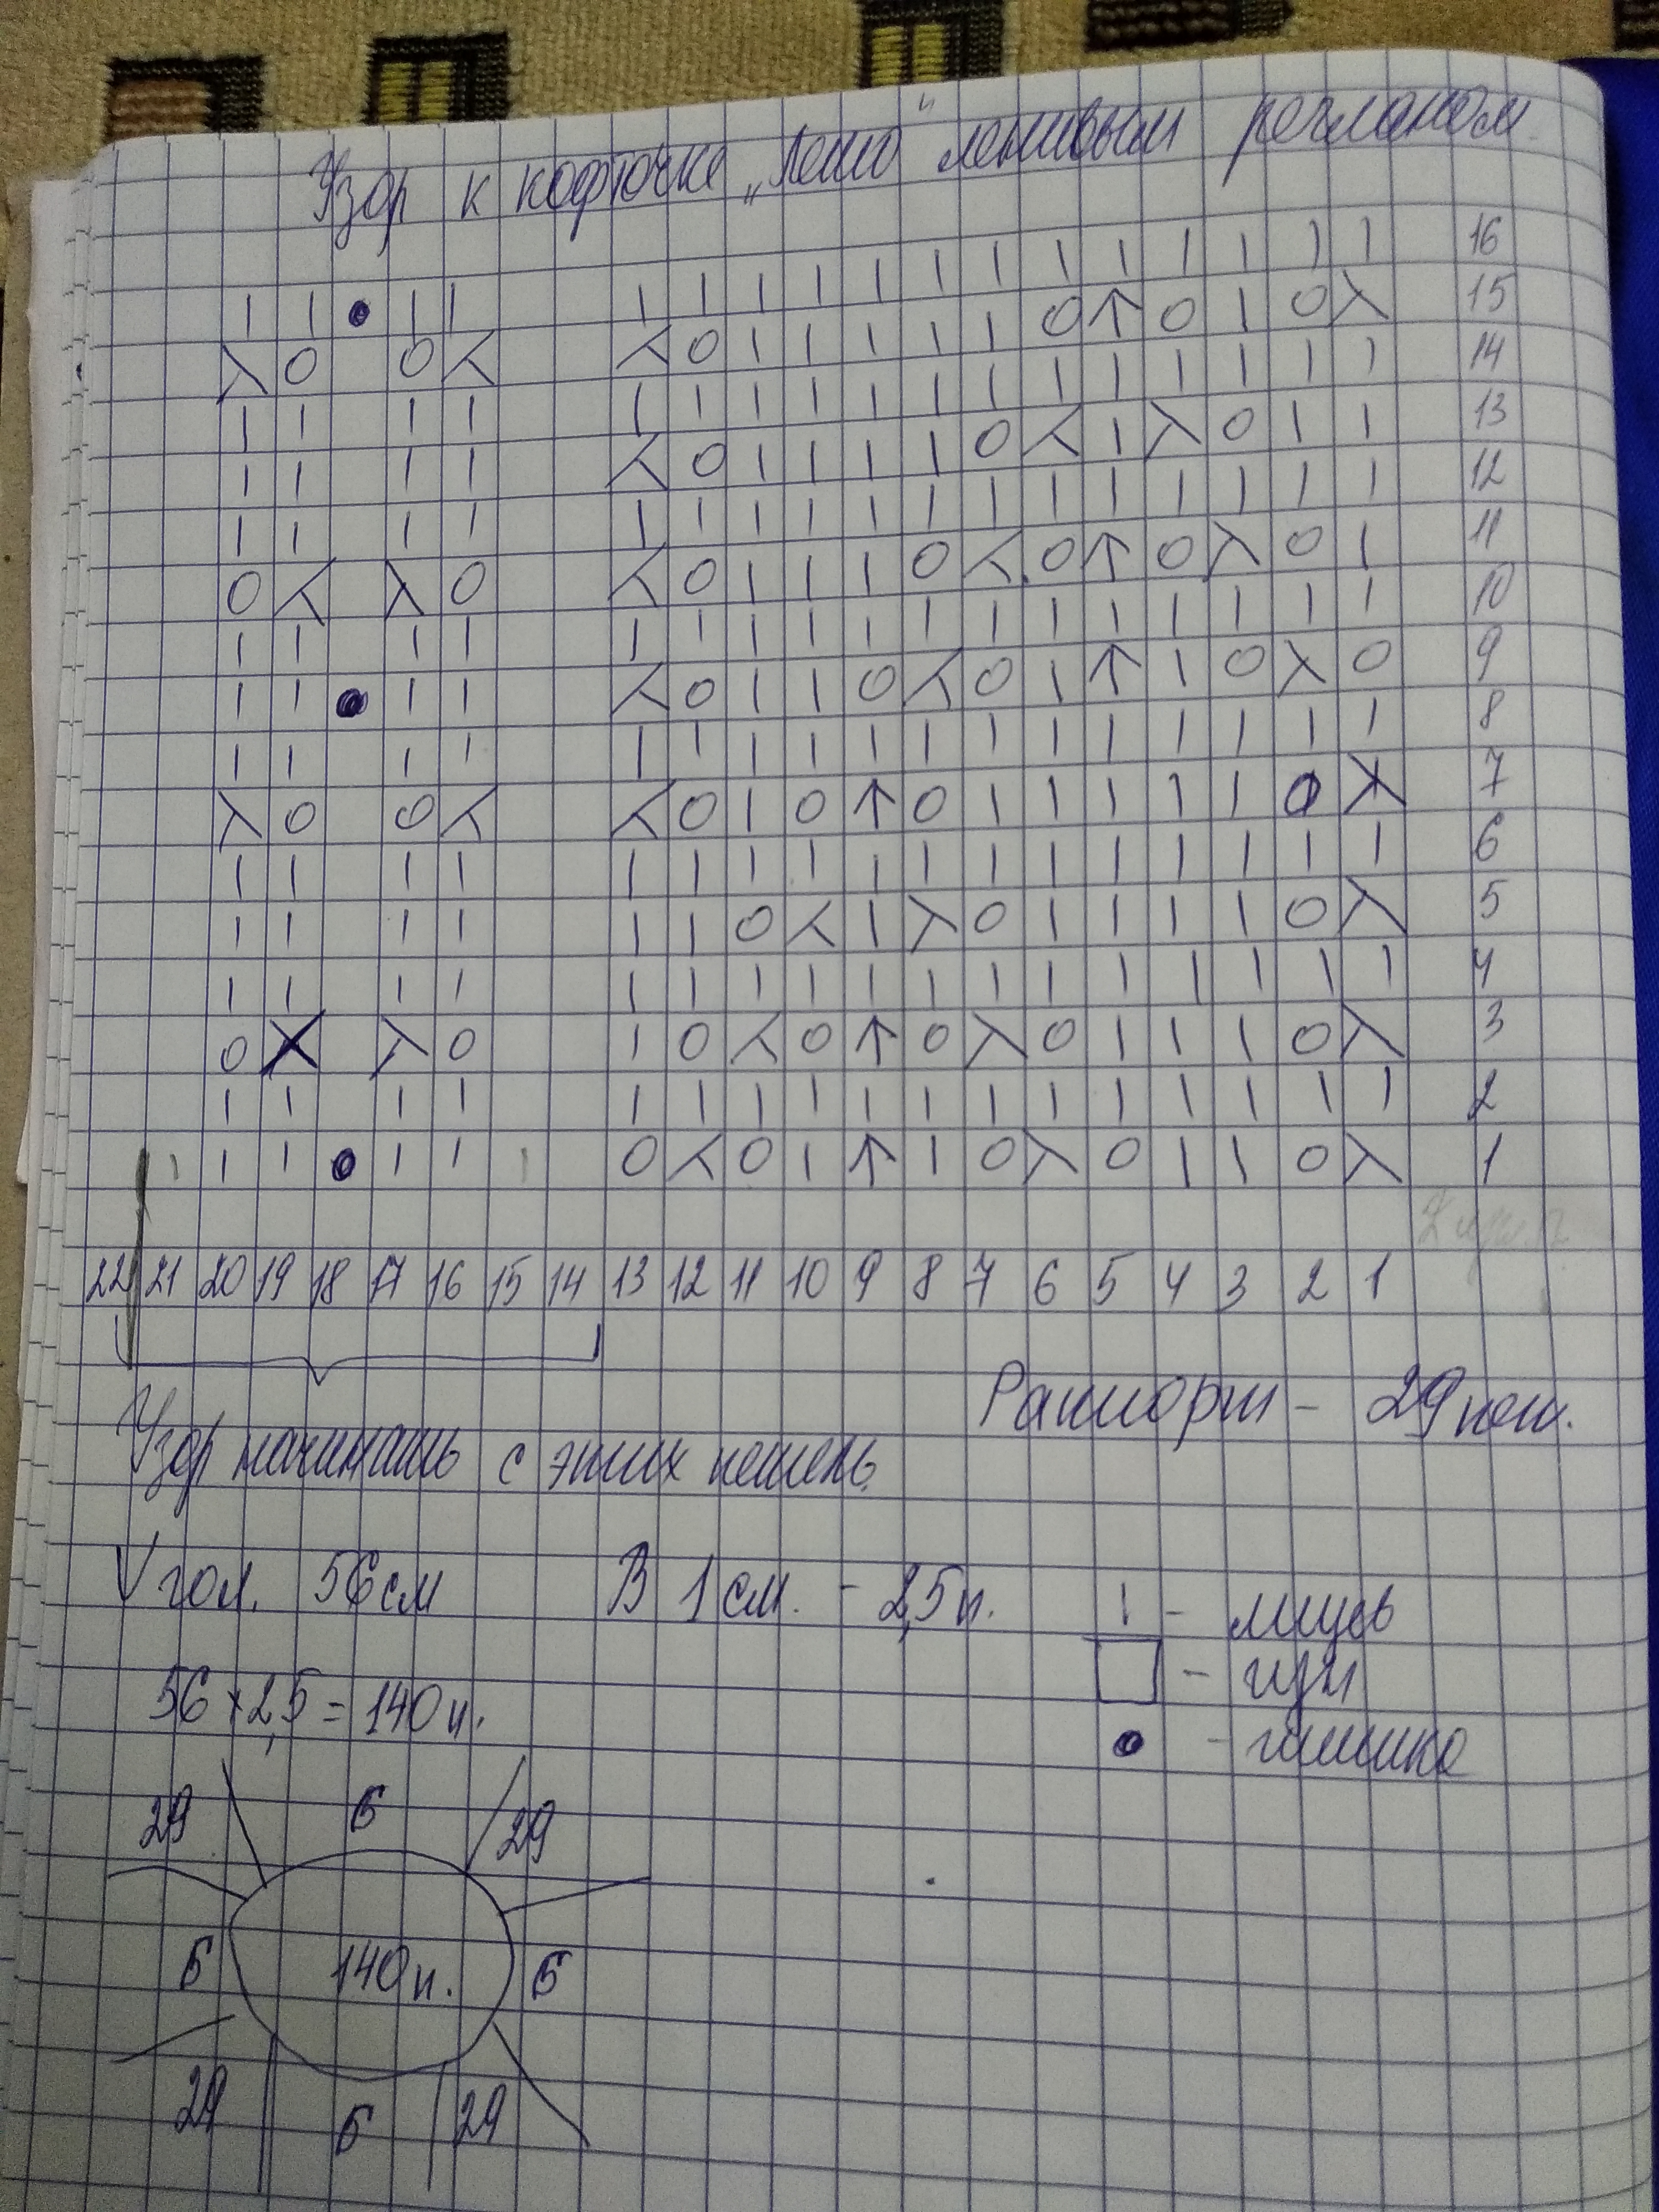 Узор к кофточке „Лето" ленивым регланом
| | ● | | | | | | | | | | | | | | | 16
⋋ O O ⋌ ⋌ O | | | | | O ↑ O | O ⋋ 15
| | | | | | | | | | | | | | | | | 14
| | | | ⋌ O | | | | O ⋌ | ⋋ O | | 13
| | | | | | | | | | | | | | | | | 12
O ⋌ ⋋ O ⋌ O | | | O ⋌ O ↑ O ⋋ O | 11
| | | | | | | | | | | | | | | | | 10
| | ● | | ⋌ O | | O ⋌ O | ↑ | O ⋋ O 9
| | | | | | | | | | | | | | | | | 8
⋋ O O ⋌ ⋌ O | O ↑ O | | | | | O ⋋ 7
| | | | | | | | | | | | | | | | | 6
| | | | | | O ⋌ | ⋋ O | | | | O ⋋ 5
| | | | | | | | | | | | | | | | | 4
O X ⋋ O | O ⋌ O ↑ O ⋋ O | | | O ⋋ 3
| | | | | | | | | | | | | | | | | 2
| | | ● | | | O ⋌ O | ↑ | O ⋋ O | | O ⋋ 1
22 21 20 19 18 17 16 15 14 13 12 11 10 9 8 7 6 5 4 3 2 1
Раппорт - 29 пет.
Узор начинать с этих петель
V гол. 56 см В 1 см. - 2,5 п. | - лицев
□ - изн
56 × 2,5 = 140 п.
● - шишка
29 6 29
6 140 п. 6
29 6 29